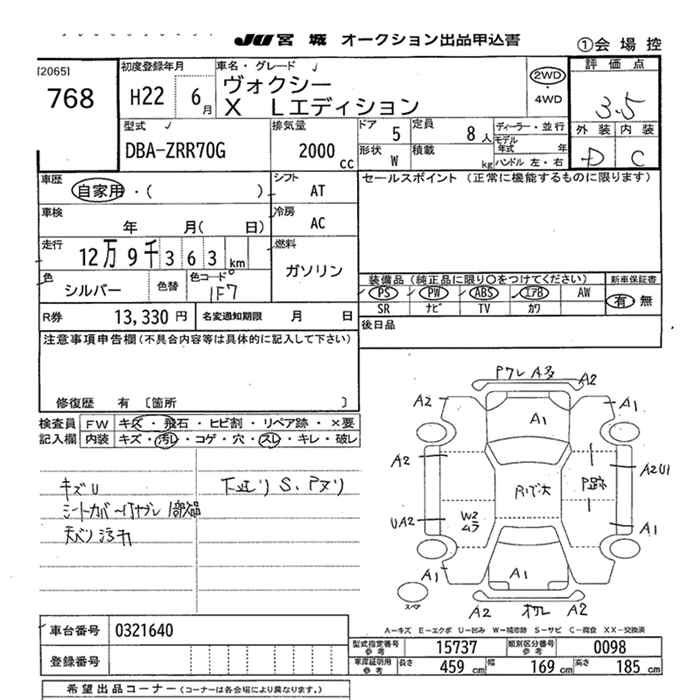 JU 宮城 オークション出品申込書
①会場控
[2065] 初度登録年月 車名・グレード 評価点
768 H22 6月 ヴォクシー X Lエディション 2WD ・ 4WD 3.5
型式 排気量 ドア 5 定員 8人 ディーラー・並行 外装 内装
DBA-ZRR70G 2000cc 形状 W 積載 kg モデル年式 年 ハンドル 左・右 D C
車歴 自家用・( ) シフト AT セールスポイント (正常に機能するものに限ります)
車検 年 月( 日) 冷房 AC
走行 12万9千363km 燃料 ガソリン
色 シルバー 色替 色コード 1F7
装備品(純正品に限り○をつけてください) 新車保証書
PS PW ABS エアB AW 有 無
SR ナビ TV カワ
R券 13,330円 名変通知期限 月 日 後日品
注意事項申告欄(不具合内容等は具体的に記入して下さい)
修復歴 有 〔箇所 〕
検査員記入欄 FW キズ・飛石・ヒビ割・リペア跡・×要
内装 キズ・汚レ・コゲ・穴・スレ・キレ・破レ
キズU 下廻り S、Pヌリ
シートカバー
天バリ汚れ
PワレA多 A2
A2 A1 A1
A2 P跡 A2U1
W2ムラ
UA2 A1
A1 A1
スペア A2 A2
A-キズ E-エクボ U-凹み W-補修跡 S-サビ C-腐食 XX-交換済
車台番号 0321640
登録番号
型式指定番号 参考 15737 類別区分番号 参考 0098
車庫証明用 参考 長さ 459cm 幅 169cm 高さ 185cm
希望出品コーナー(コーナーは各会場により異なります。)